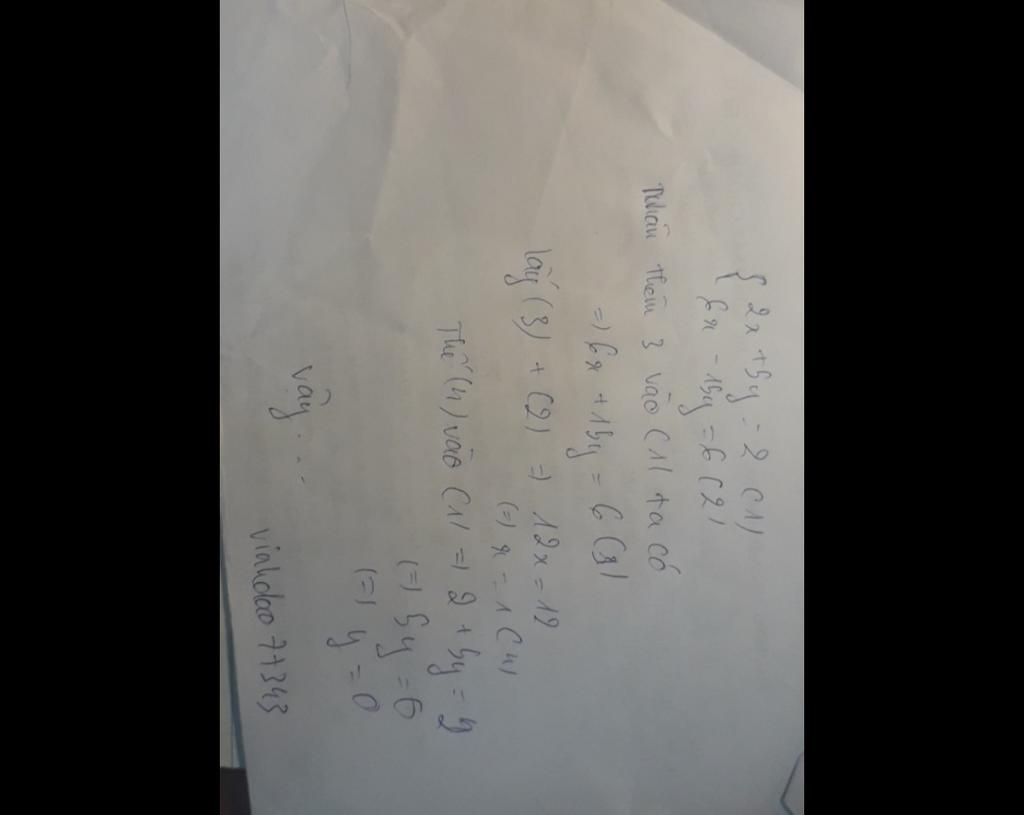 { 2x + 5y = 2 (1)
6x - 15y = 6 (2)
Nhân thêm 3 vào (1) ta có
=) 6x + 15y = 6 (3)
lấy (3) + (2) =) 12x = 12
(=) x = 1 (4)
Thế (4) vào (1) =) 2 + 5y = 2
(=) 5y = 0
(=) y = 0
vậy...
vinhdao77343